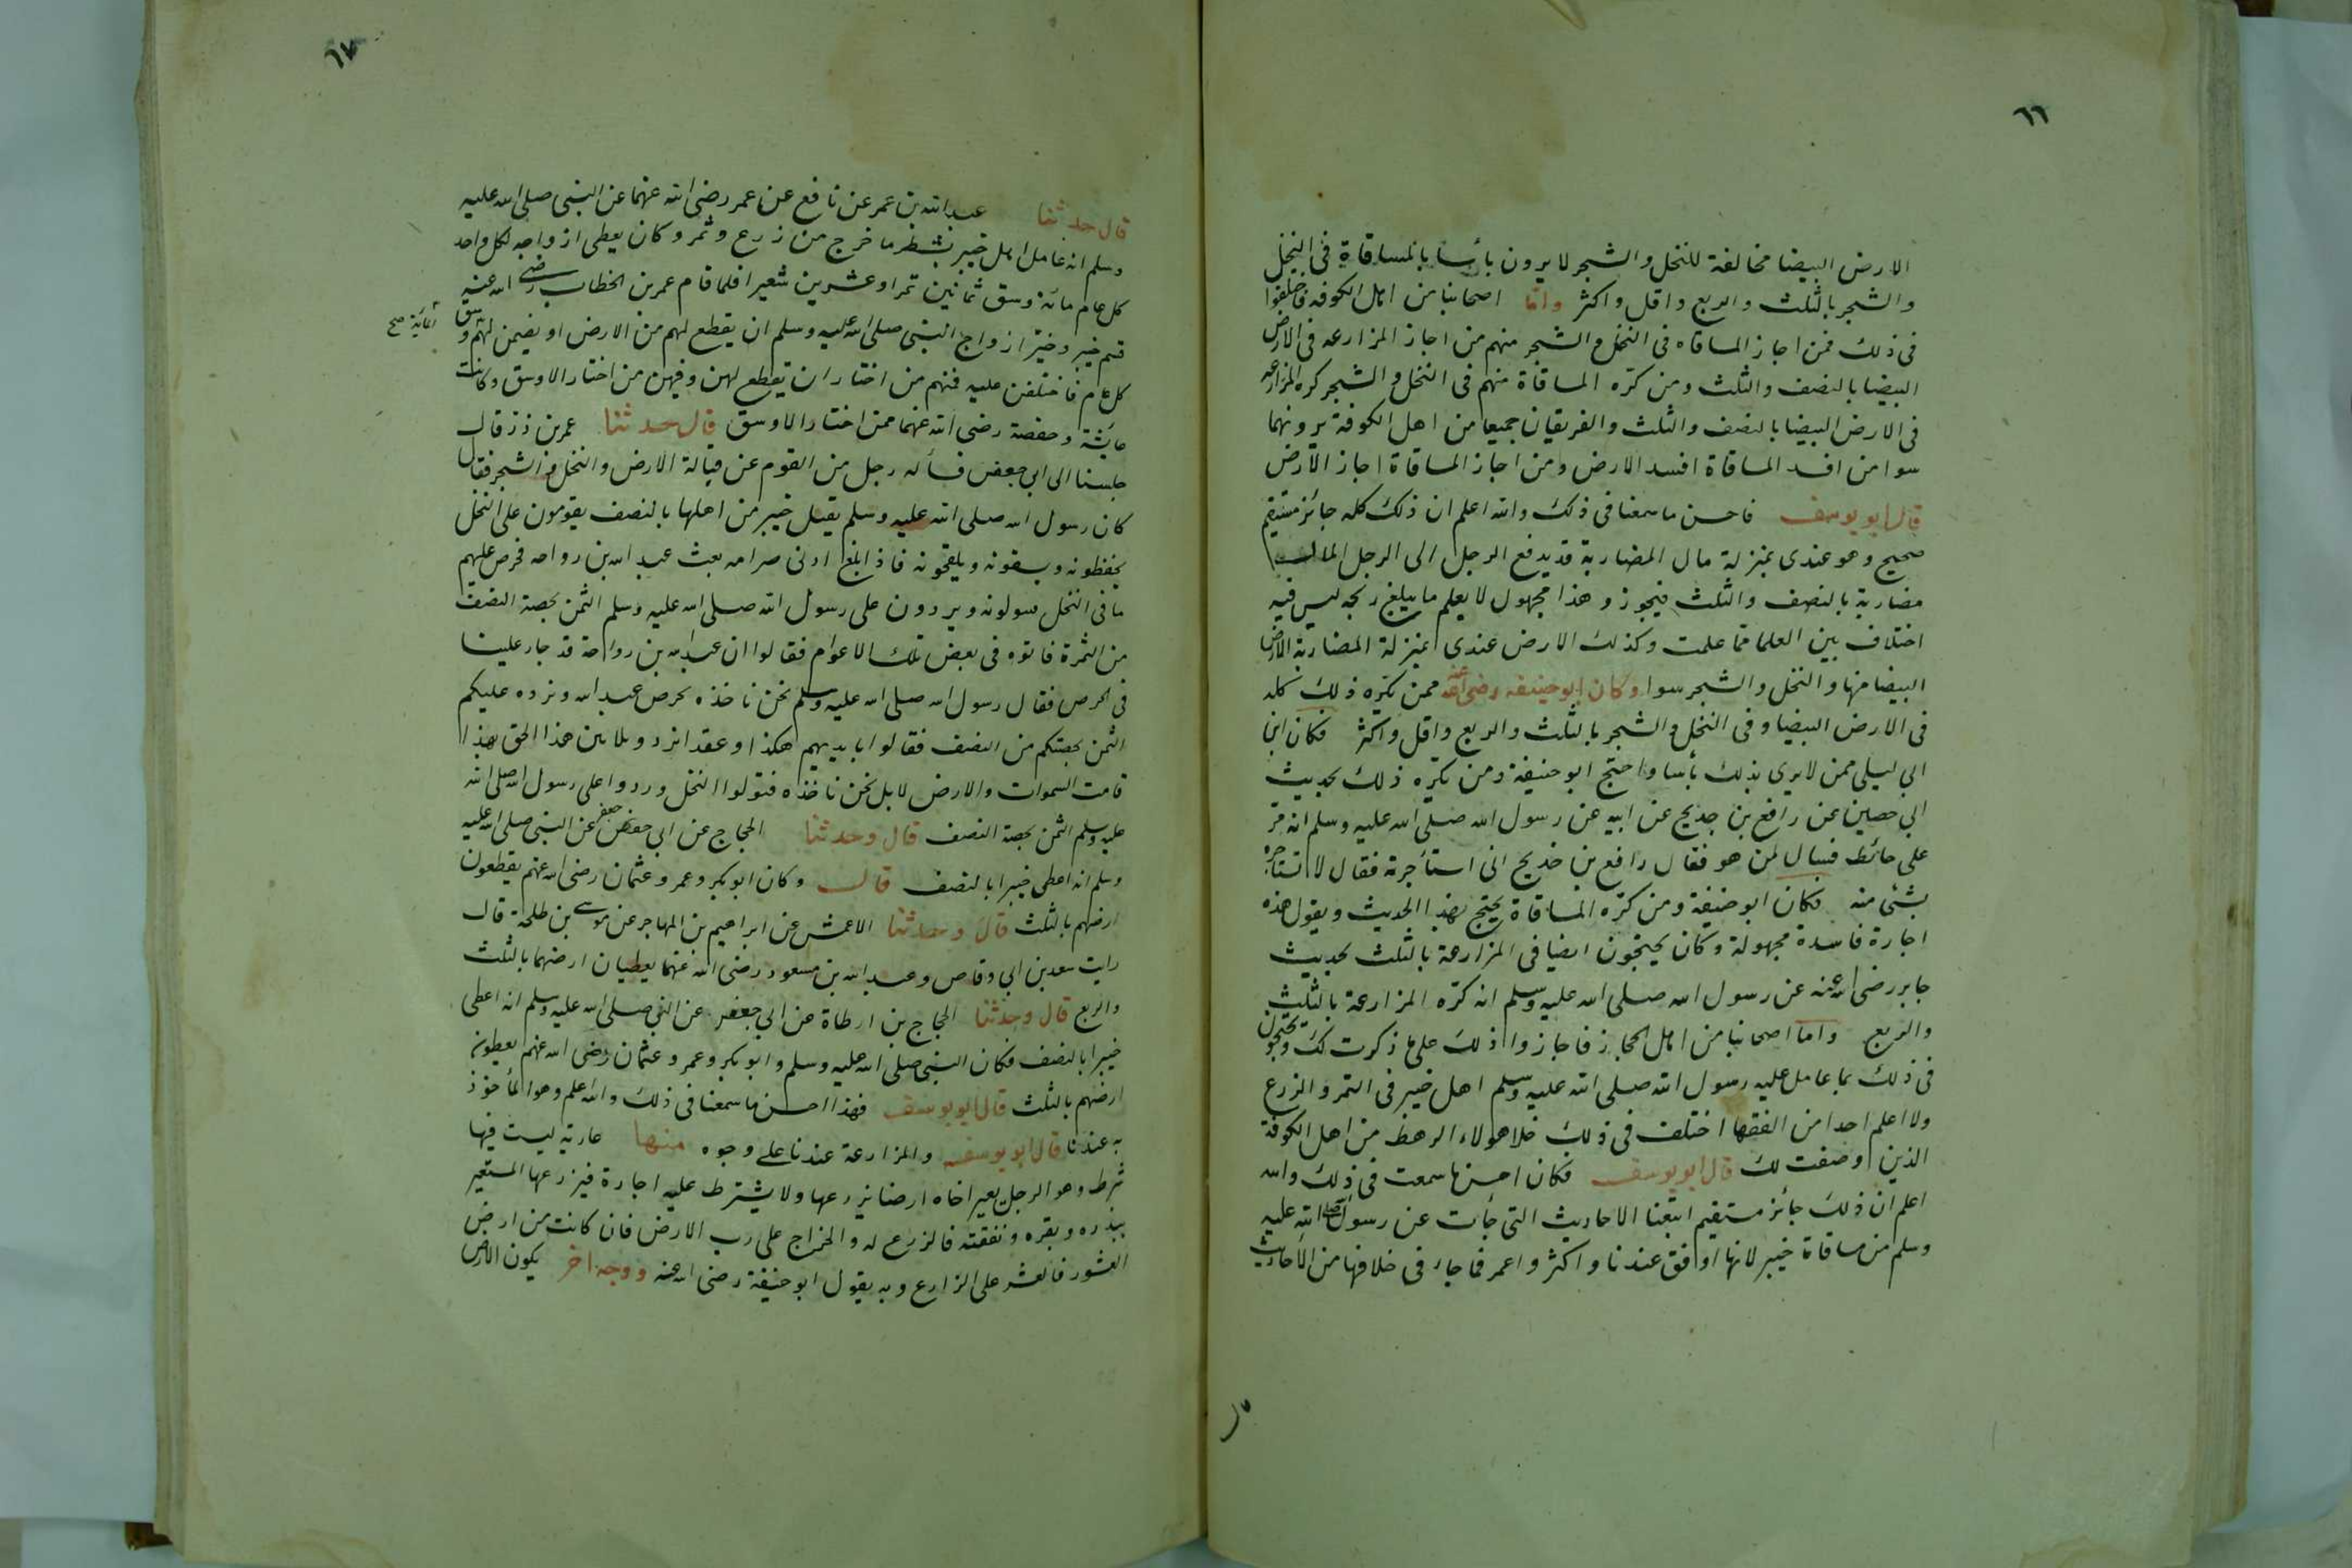 ٦٦
الارض البيضا مخالفة للنخل والشجر لا يرون بأسا بالمساقاة فى النخل
والشجر بالثلث والربع واقل واكثر واما اصحابنا من اهل الكوفه فاختلفوا
فى ذلك فمن اجاز المساقاه فى النخل والشجر منهم من اجاز المزارعه فى الارض
البيضا بالنصف والثلث ومن كره المساقاة منهم فى النخل والشجر كره المزارعه
فى الارض البيضا بالنصف والثلث والفريقان جميعا من اهل الكوفة يرونهما
سوا من افسد المساقاة افسد الارض ومن اجاز المساقاة اجاز الارض
قال ابو يوسف فاحسن ما سمعنا فى ذلك والله اعلم ان ذلك كله جائز مستقيم
صحيح وهو عندى بمنزلة مال المضاربة قد يدفع الرجل الى الرجل المال
مضاربة بالنصف والثلث فيجوز وهذا مجهول لا يعلم ما يبلغ ربحه ليس فيه
اختلاف بين العلما فما علمت وكذلك الارض عندى بمنزلة المضاربة الارض
البيضا منها والنخل والشجر سوا وكان ابو حنيفه رضى الله عنه ممن يكره ذلك كله
فى الارض البيضا وفى النخل والشجر بالثلث والربع واقل واكثر فكان ابن
ابى ليلى ممن لا يرى بذلك بأسا واحتج ابو حنيفة ومن يكره ذلك بحديث
ابى حصين عن رافع بن خديج عن ابيه عن رسول الله صلى الله عليه وسلم انه مر
على حائط فسال لمن هو فقال رافع بن خديج انى استأجرته فقال لا تستأجره
بشئ منه فكان ابو حنيفة ومن كره المساقاة يحتج بهذا الحديث ويقول هذه
اجارة فاسدة مجهولة وكان يحتجون ايضا فى المزارعة بالثلث بحديث
جابر رضى الله عنه عن رسول الله صلى الله عليه وسلم انه كره المزارعة بالثلث
والربع واما اصحابنا من اهل الحجاز فاجازوا ذلك على ما ذكرت لك ويحتجون
فى ذلك بما عامل عليه رسول الله صلى الله عليه وسلم اهل خيبر فى التمر والزرع
ولا اعلم احدا من الفقها اختلف فى ذلك خلا هولاء الرهط من اهل الكوفة
الذين وصفت لك قال ابو يوسف فكان احسن ما سمعت فى ذلك والله
اعلم ان ذلك جائز مستقيم اتبعنا الاحاديث التى جأت عن رسول الله صلى الله عليه
وسلم من مساقاة خيبر لانها اوفق عندنا واكثر واعم مما جاء فى خلافها من الاحاديث
٦٧
قال حدثنا عبد الله بن عمر عن نافع عن عمر رضى الله عنهما عن النبى صلى الله عليه
وسلم انه عامل اهل خيبر بشطر ما خرج من زرع وثمر وكان يعطى ازواجه لكل واحد
كل عام مائة وسق ثمانين تمرا وعشرين شعيرا فلما قام عمر بن الخطاب رضى الله عنه
قسم خيبر وخير ازواج النبى صلى الله عليه وسلم ان يقطع لهم من الارض او يضمن لهم وسق
كل عام فاختلفن عليه فمنهم من اختار ان تقطع لهن وفيهن من اختار الاوسق وكانت
عائشة وحفصة رضى الله عنهما ممن اختار الاوسق قال حدثنا عمر بن ذر قال
جلسنا الى ابى جعفر فسأله رجل من القوم عن قبالة الارض والنخل والشجر فقال
كان رسول الله صلى الله عليه وسلم يقبل خيبر من اهلها بالنصف يقومون على النخل
يحفظونه ويسقونه ويلقحونه فاذا بلغ ادنى صرامه بعث عبد الله بن رواحه فخرص عليهم
ما فى النخل فيتولونه ويردون على رسول الله صلى الله عليه وسلم الثمن بحصة النصف
من الثمرة فاتوه فى بعض تلك الاعوام فقالوا ان عبد الله بن رواحة قد جار علينا
فى الخرص فقال رسول الله صلى الله عليه وسلم نحن ناخذه بخرص عبد الله ونرده عليكم
الثمن بحصتكم من النصف فقالوا بايديهم هكذا وعقد هذا الحق بهذا
قامت السموات والارض لا بل نحن ناخذه فتولوا النخل وردوا على رسول الله صلى الله
عليه وسلم الثمن بحصة النصف قال وحدثنا الحجاج عن ابى جعفر عن النبى صلى الله عليه
وسلم انه اعطى خيبرا بالنصف قال وكان ابو بكر وعمر وعثمان رضى الله عنهم يقطعون
ارضهم بالثلث قال وحدثنا الاعمش عن ابراهيم بن المهاجر عن موسى بن طلحة قال
رايت سعد بن ابى وقاص وعبد الله بن مسعود رضى الله عنهما يعطيان ارضهما بالثلث
والربع قال وحدثنا الحجاج بن ارطاة عن ابى جعفر عن النبى صلى الله عليه وسلم انه اعطى
خيبرا بالنصف فكان النبى صلى الله عليه وسلم وابو بكر وعمر وعثمان رضى الله عنهم يعطون
ارضهم بالثلث قال ابو يوسف فهذا احسن ما سمعنا فى ذلك والله اعلم وهو المأخوذ
به عندنا قال ابو يوسف والمزارعة عندنا على وجوه منها عارية ليست فيها
شرط وهو الرجل يعير اخاه ارضا يزرعها ولا يشترط عليه اجارة فيزرعها المستعير
ببذره وبقره ونفقته فالزرع له والخراج على رب الارض فان كانت من ارض
العشور فالعشر على الزارع وبه يقول ابو حنيفة رضى الله عنه ووجه اخر يكون الارض